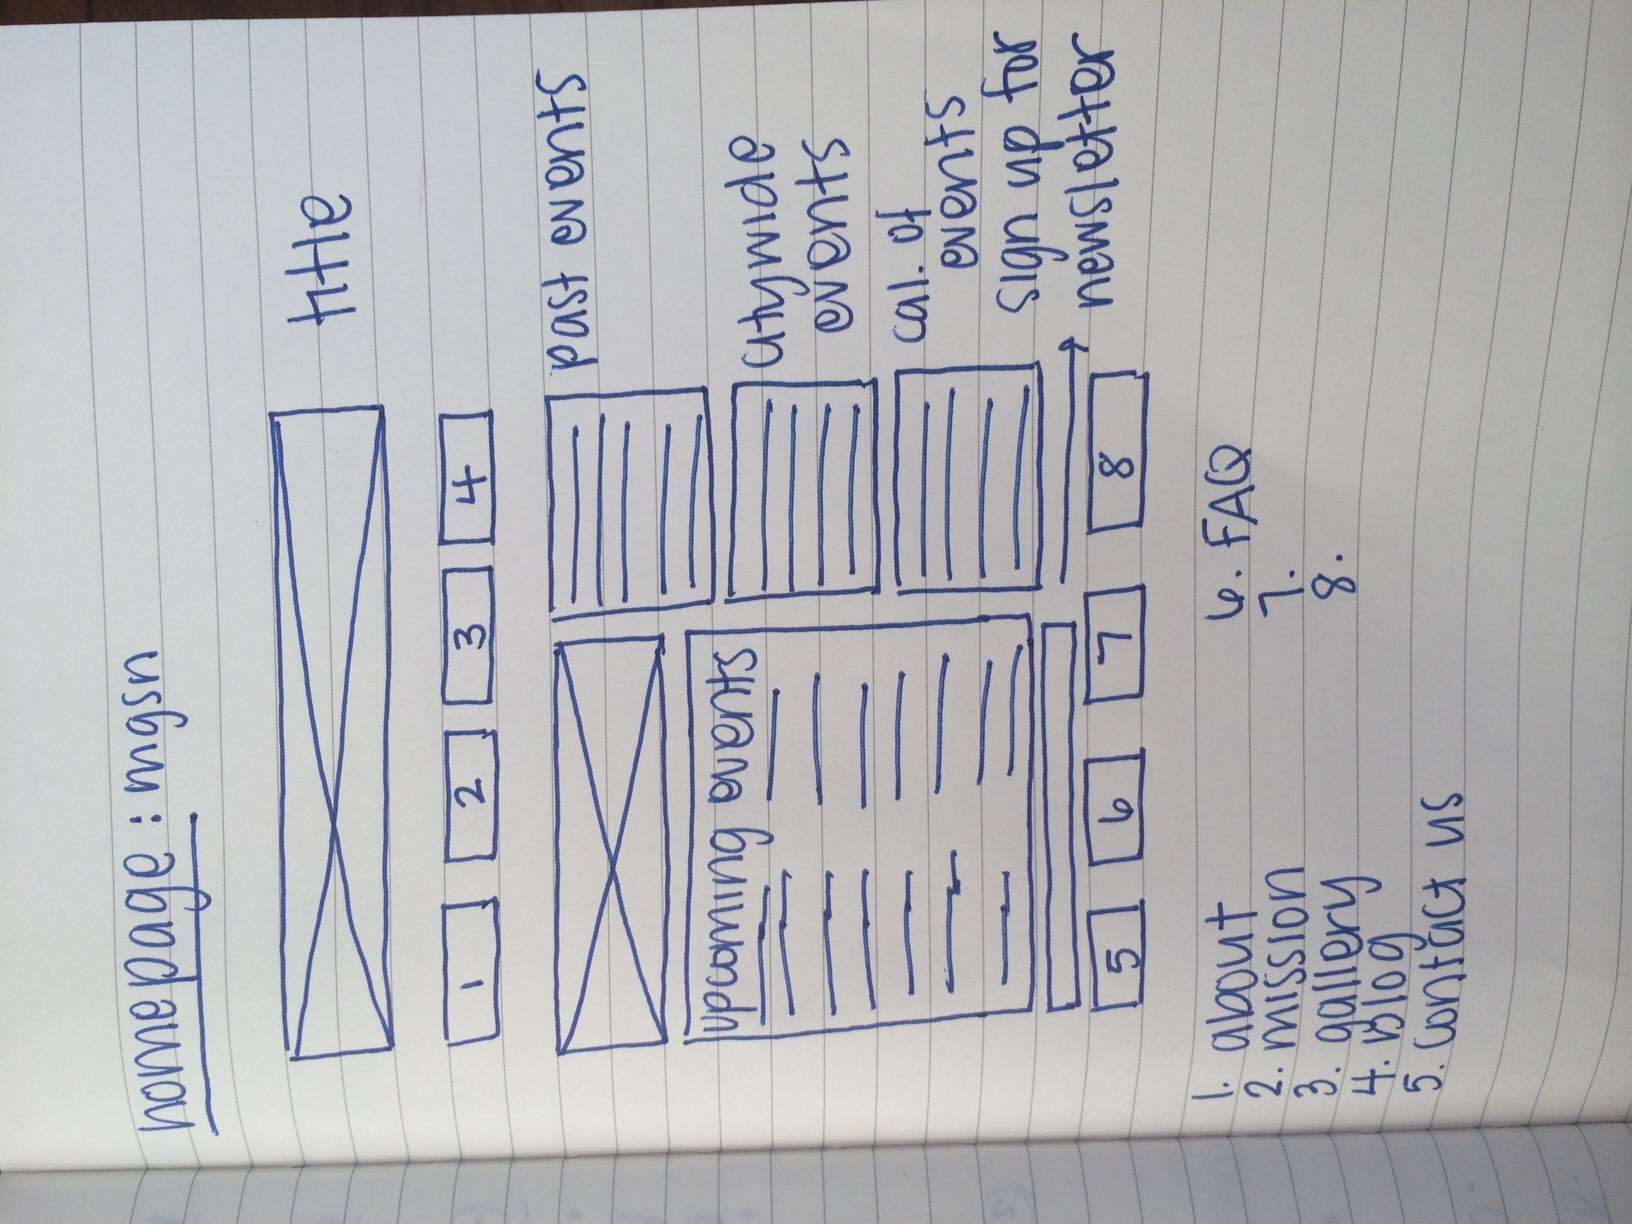 homepage: mgsn
title
1 2 3 4
past events
upcoming events
citywide
events
cal. of
events
sign up for
newsletter
5 6 7 8
1. about
2. mission
3. gallery
4. Blog
5. contact us
6. FAQ
7.
8.